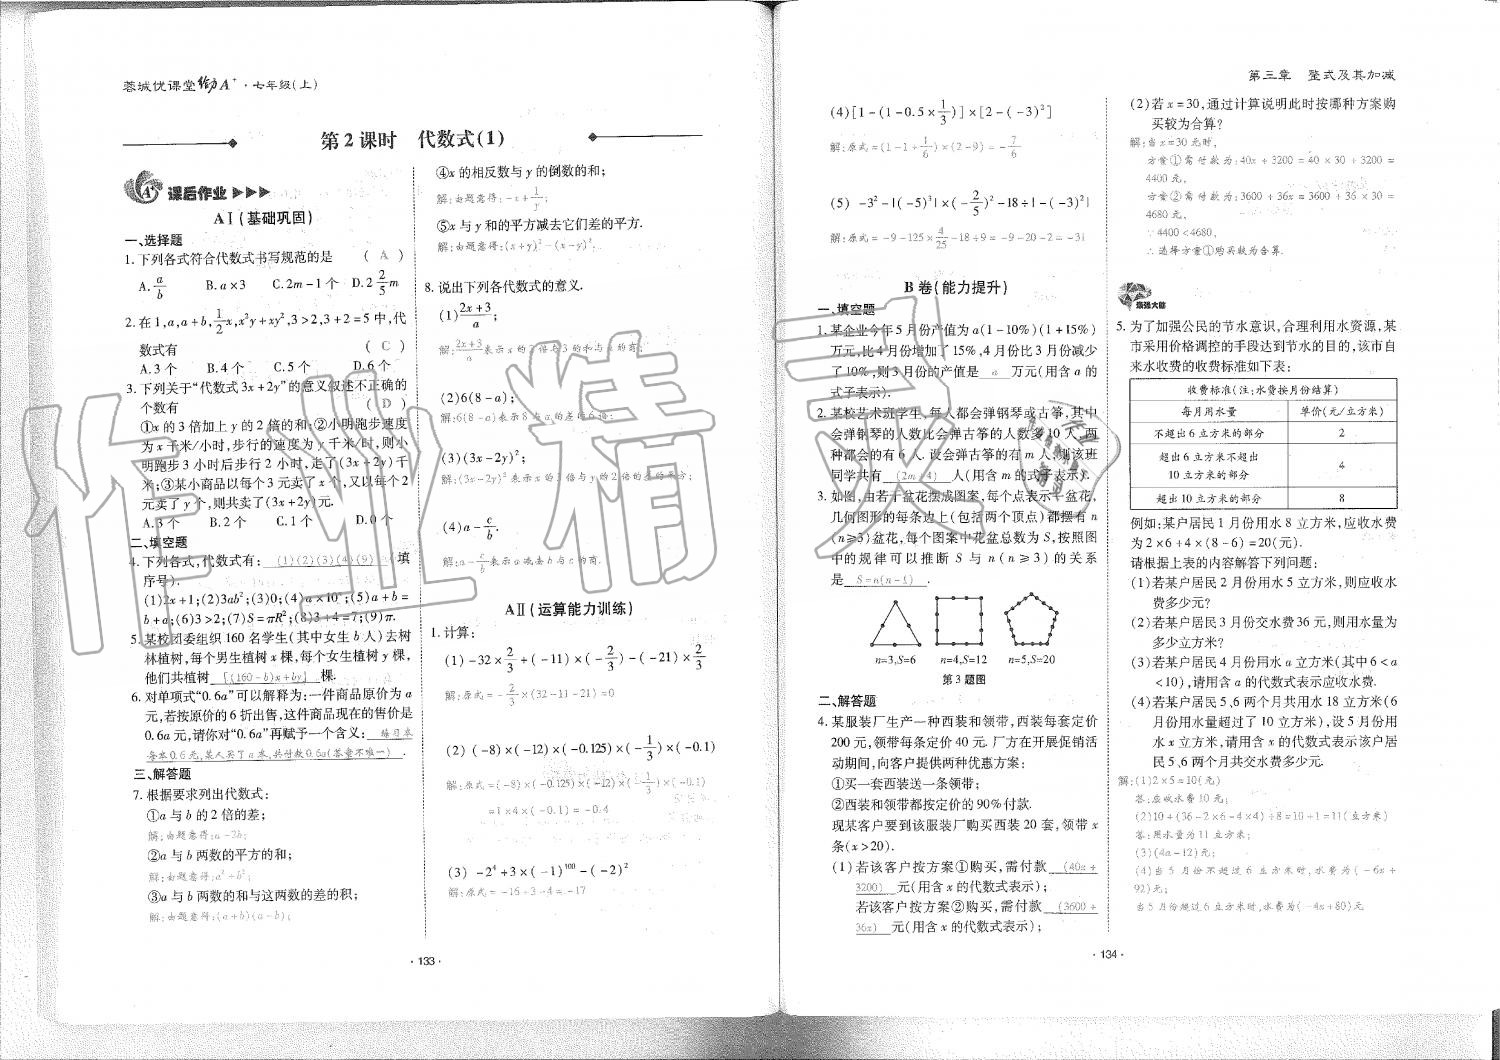 蓉城优课堂给力A⁺·七年级(上)
第2课时 代数式(1)
课后作业
AⅠ(基础巩固)
一、选择题
1.下列各式符合代数式书写规范的是 ( A )
A.a/b B.a×3 C.2m-1个 D.2 2/5 m
2.在1,a,a+b,1/2 x,x²y+xy²,3>2,3+2=5中,代
数式有 ( C )
A.3个 B.4个 C.5个 D.6个
3.下列关于“代数式3x+2y”的意义叙述不正确的
个数有 ( D )
①x的3倍加上y的2倍的和;②小明跑步速度
为x千米/小时,步行的速度为y千米/时,则小
明跑步3小时后步行2小时,走了(3x+2y)千
米;③某小商品以每个3元卖了x个,又以每个2
元卖了y个,则共卖了(3x+2y)元.
A.3个 B.2个 C.1个 D.0个
二、填空题
4.下列各式,代数式有: (1)(2)(3)(4)(9) (填
序号).
(1)2x+1;(2)3ab²;(3)0;(4)a×10ⁿ;(5)a+b=
b+a;(6)3>2;(7)S=πR²;(8)3+4=7;(9)π.
5.某校团委组织160名学生(其中女生b人)去树
林植树,每个男生植树x棵,每个女生植树y棵,
他们共植树 [(160-b)x+by] 棵.
6.对单项式“0.6a”可以解释为:一件商品原价为a
元,若按原价的6折出售,这件商品现在的售价是
0.6a元,请你对“0.6a”再赋予一个含义: 练习本
每本0.6元,某人买了a本,共付款0.6a(答案不唯一) .
三、解答题
7.根据要求列出代数式:
①a与b的2倍的差;
解:由题意得:a-2b;
②a与b两数的平方的和;
解:由题意得:a²+b²;
③a与b两数的和与这两数的差的积;
解:由题意得:(a+b)(a-b);
④x的相反数与y的倒数的和;
解:由题意得:-x+1/y;
⑤x与y和的平方减去它们差的平方.
解:由题意得:(x+y)²-(x-y)².
8.说出下列各代数式的意义.
(1)2x+3/a;
解:2x+3/a表示x的2倍与3的和与a的商;
(2)6(8-a);
解:6(8-a)表示8与a的差的6倍;
(3)(3x-2y)²;
解:(3x-2y)²表示x的3倍与y的2倍的差的平方;
(4)a-c/b.
解:a-c/b表示a减去b与c的商.
AⅡ(运算能力训练)
1.计算:
(1)-32×2/3+(-11)×(-2/3)-(-21)×2/3
解:原式=-2/3×(32-11-21)=0
(2)(-8)×(-12)×(-0.125)×(-1/3)×(-0.1)
解:原式=(-8)×(-0.125)×(-12)×(-1/3)×(-0.1)
=1×4×(-0.1)=-0.4
(3)-2⁴+3×(-1)¹⁰⁰-(-2)²
解:原式=-16+3-4=-17
·133·
第三章 整式及其加减
(4)[1-(1-0.5×1/3)]×[2-(-3)²]
解:原式=(1-1+1/6)×(2-9)=-7/6
(5)-3²-|(-5)³|×(-2/5)²-18÷|-(-3)²|
解:原式=-9-125×4/25-18÷9=-9-20-2=-31
B卷(能力提升)
一、填空题
1.某企业今年5月份产值为a(1-10%)(1+15%)
万元,比4月份增加了15%,4月份比3月份减少
了10%,则3月份的产值是 a 万元(用含a的
式子表示).
2.某校艺术班学生,每人都会弹钢琴或古筝,其中
会弹钢琴的人数比会弹古筝的人数多10人,两
种都会的有6人.设会弹古筝的有m人,则该班
同学共有 (2m+4) 人(用含m的式子表示).
3.如图,由若干盆花摆成图案,每个点表示一盆花,
几何图形的每条边上(包括两个顶点)都摆有n
(n≥3)盆花,每个图案中花盆总数为S,按照图
中的规律可以推断S与n(n≥3)的关系
是 S=n(n-1) .
n=3,S=6 n=4,S=12 n=5,S=20
第3题图
二、解答题
4.某服装厂生产一种西装和领带,西装每套定价
200元,领带每条定价40元.厂方在开展促销活
动期间,向客户提供两种优惠方案:
①买一套西装送一条领带;
②西装和领带都按定价的90%付款.
现某客户要到该服装厂购买西装20套,领带x
条(x>20).
(1)若该客户按方案①购买,需付款 (40x+
3200) 元(用含x的代数式表示);
若该客户按方案②购买,需付款 (3600+
36x) 元(用含x的代数式表示);
(2)若x=30,通过计算说明此时按哪种方案购
买较为合算?
解:当x=30元时,
方案①需付款为:40x+3200=40×30+3200=
4400元,
方案②需付款为:3600+36x=3600+36×30=
4680元,
∵4400<4680,
∴选择方案①购买较为合算.
最强大脑
5.为了加强公民的节水意识,合理利用水资源,某
市采用价格调控的手段达到节水的目的,该市自
来水收费的收费标准如下表:
收费标准(注:水费按月份结算)
每月用水量 单价(元/立方米)
不超出6立方米的部分 2
超出6立方米不超出
10立方米的部分 4
超出10立方米的部分 8
例如:某户居民1月份用水8立方米,应收水费
为2×6+4×(8-6)=20(元).
请根据上表的内容解答下列问题:
(1)若某户居民2月份用水5立方米,则应收水
费多少元?
(2)若某户居民3月份交水费36元,则用水量为
多少立方米?
(3)若某户居民4月份用水a立方米(其中6<a
<10),请用含a的代数式表示应收水费.
(4)若某户居民5、6两个月共用水18立方米(6
月份用水量超过了10立方米),设5月份用
水x立方米,请用含x的代数式表示该户居
民5、6两个月共交水费多少元.
解:(1)2×5=10(元)
答:应收水费10元;
(2)10+(36-2×6-4×4)÷8=10+1=11(立方米)
答:用水量为11立方米;
(3)(4a-12)元;
(4)当5月份不超过6立方米时,水费为(-6x+
92)元;
当5月份超过6立方米时,水费为(-4x+80)元
·134·
作业精灵